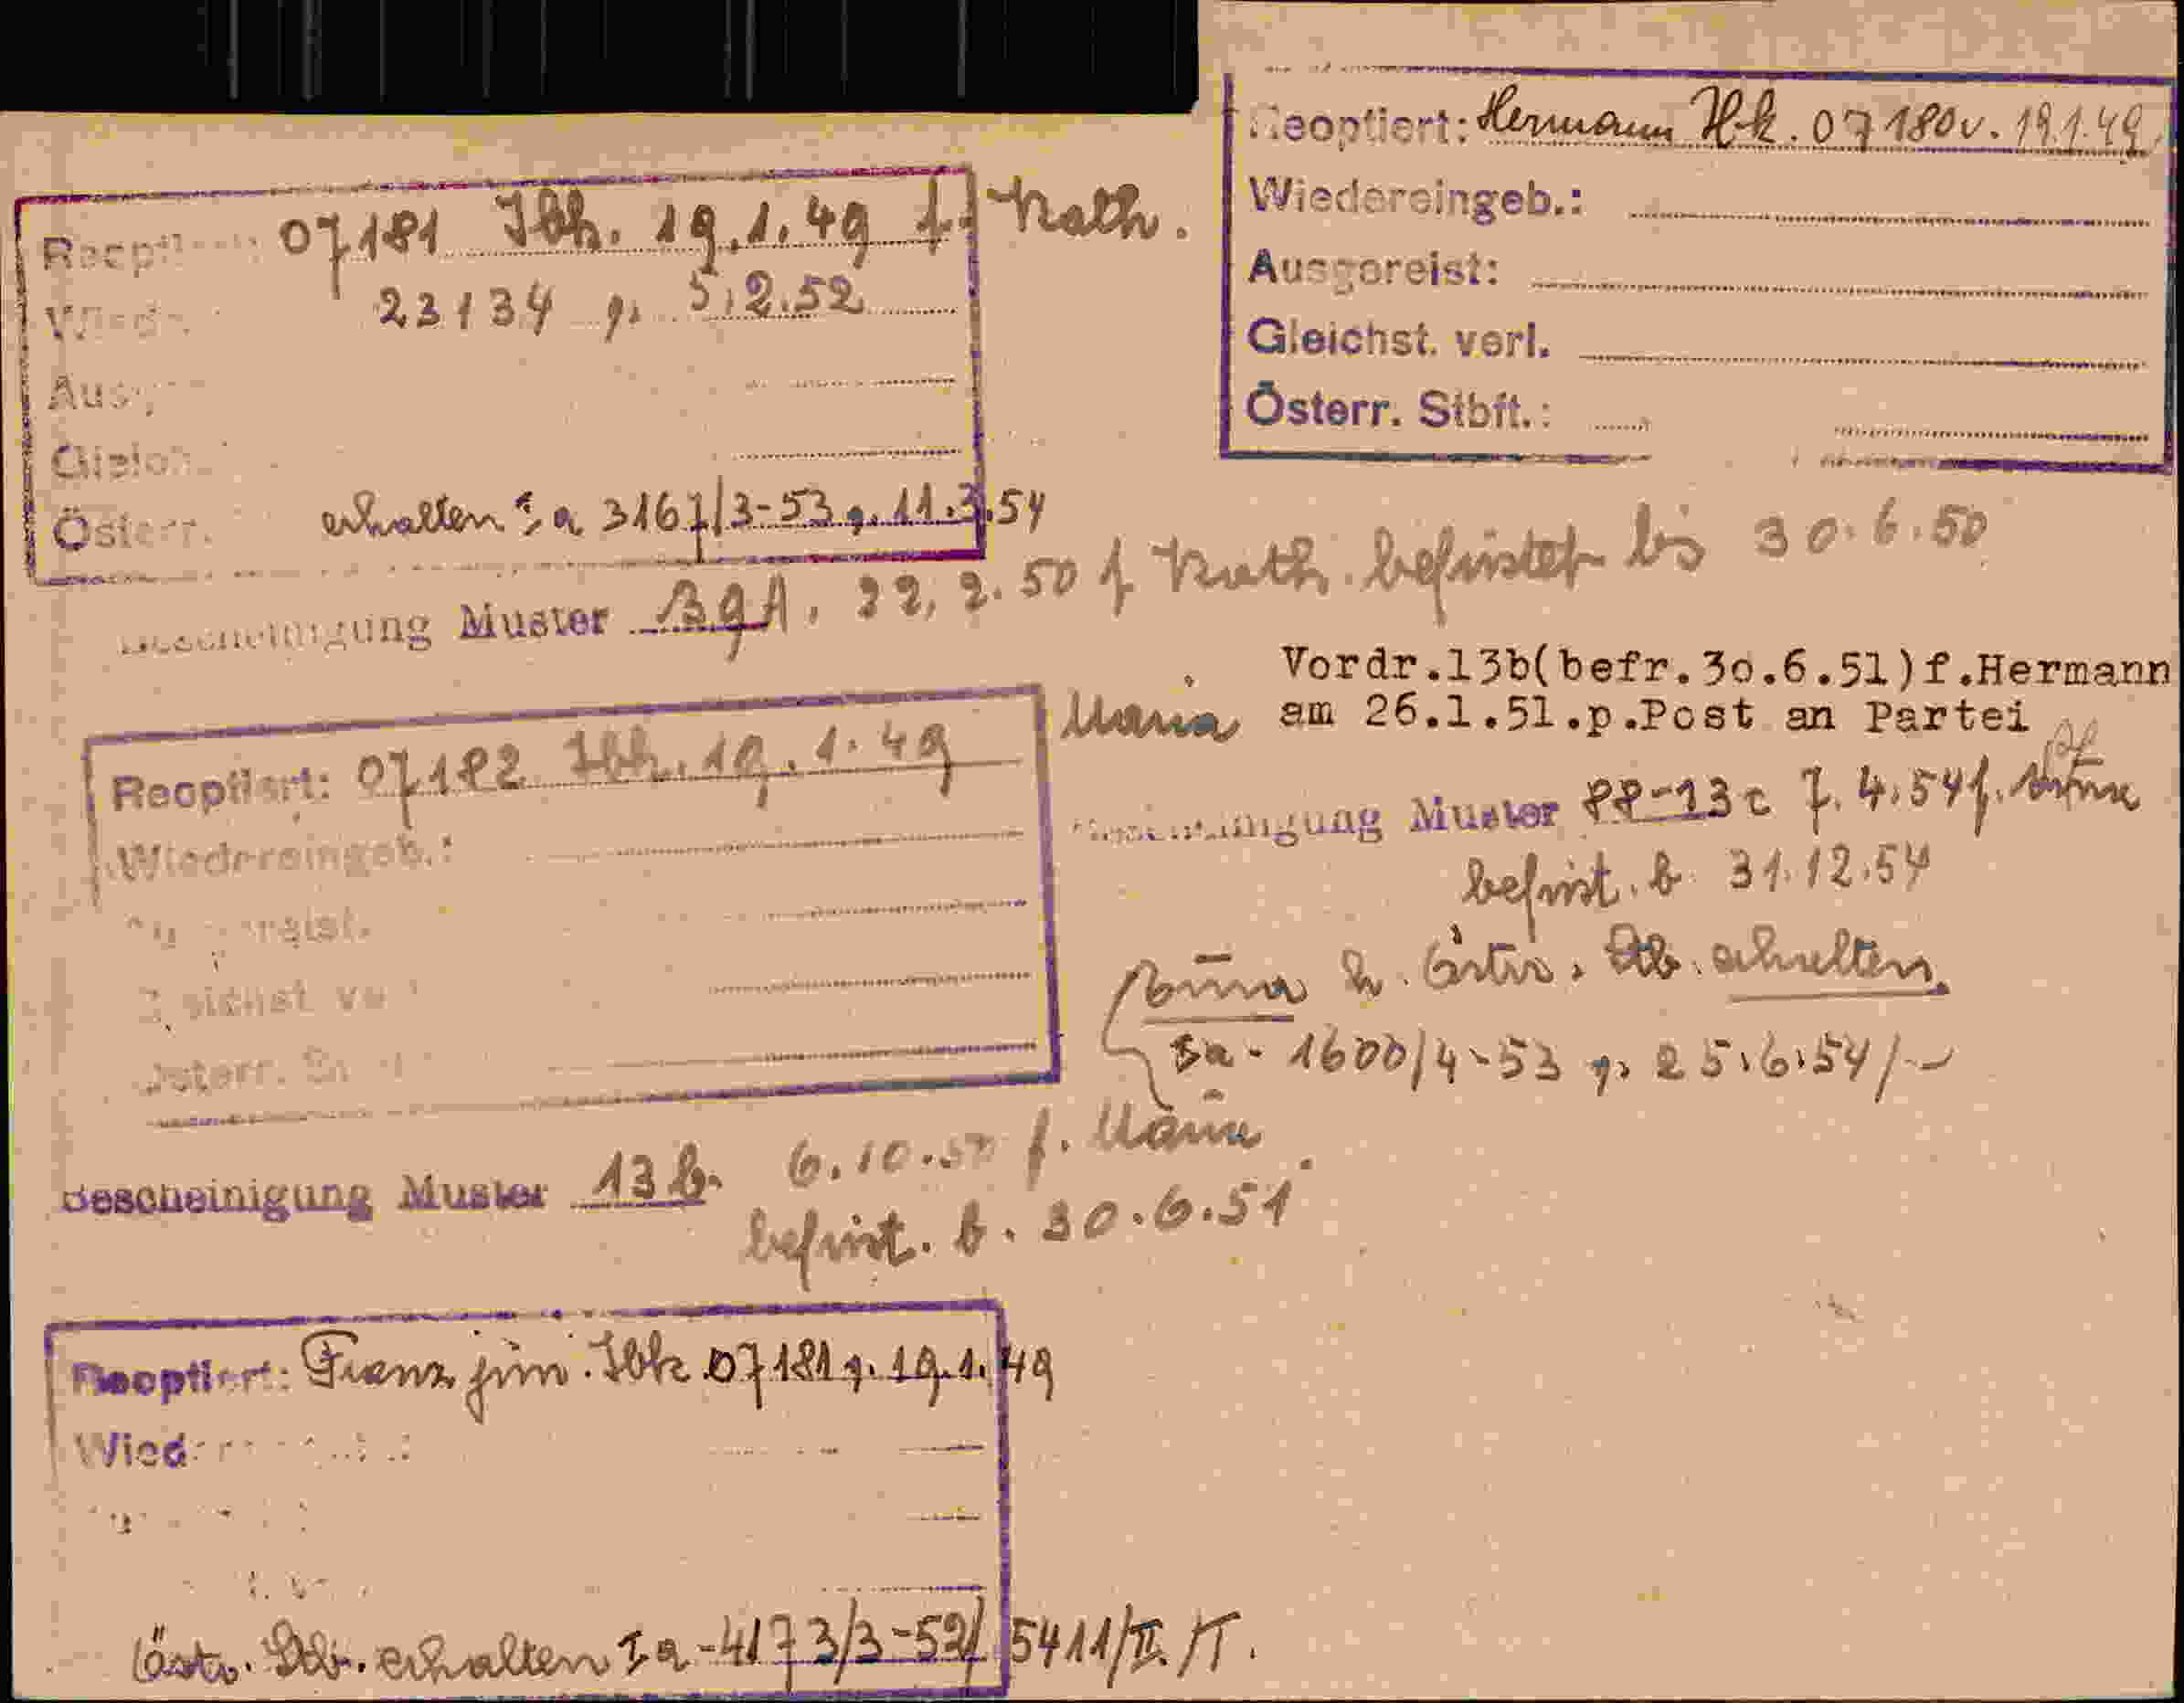 Reoptiert: Hermann Ibk. 07180 v. 19.1.49.
Wiedereingeb.:
Ausgereist:
Gleichst. verl.
Österr. Stbft.:
07181 Ibk. 19.1.49 f. Kath.
23134 v. 5.2.52
Österr. erhalten Ia 3167/3-53 v. 11.3.54
Bescheinigung Muster 22.2.50 f. Kath. befristet bis 30.6.50
Vordr.13b(befr.30.6.51)f.Hermann
am 26.1.51.p.Post an Partei
Reoptiert: 07182 Ibk. 19.1.49 Maria
Wiedereingeb.:
Bescheinigung Muster 13c 7.4.54 f.
befrist. b. 31.12.54
Östr. Stb. erhalten
Ia - 1600/4-53 v. 25.6.54/
Bescheinigung Muster 13 b. 6.10.50 f. Maria
befrist. b. 30.6.51
Reoptiert: Franz jun. Ibk 07181 v. 19.1.49
Östr. Stb. erhalten Ia-4173/3-52/5411/II/T.